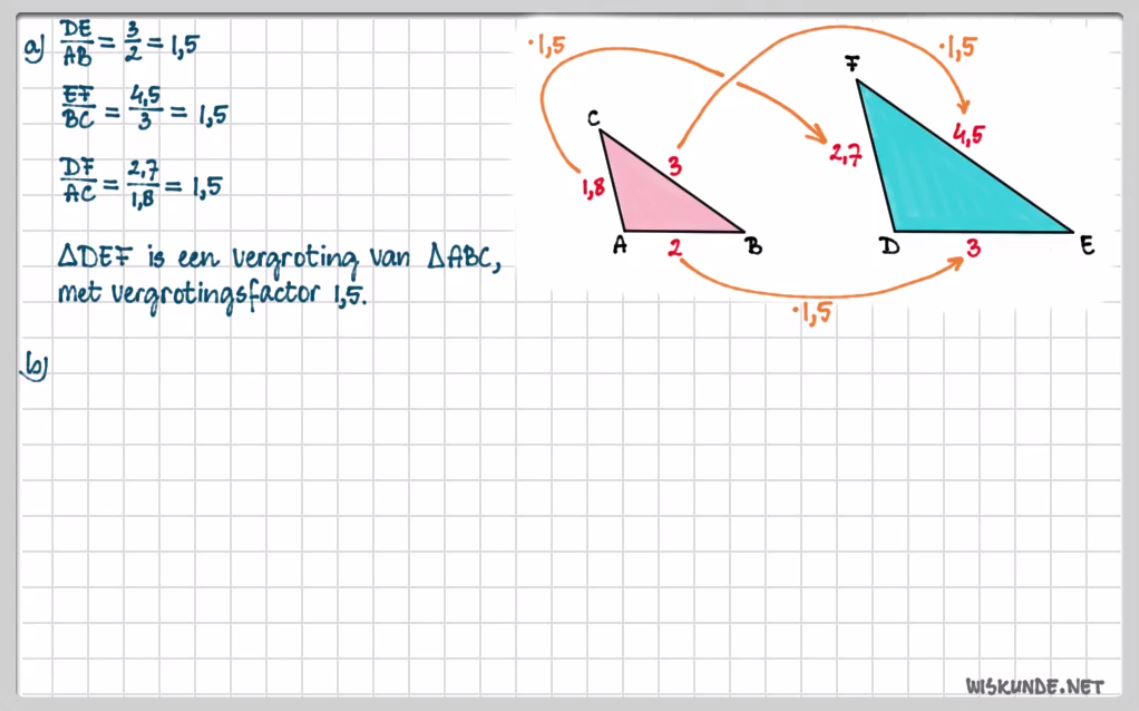 a) DE/AB = 3/2 = 1,5
EF/BC = 4,5/3 = 1,5
DF/AC = 2,7/1,8 = 1,5
ΔDEF is een vergroting van ΔABC,
met vergrotingsfactor 1,5.
b)
·1,5
·1,5
F
C
4,5
2,7
3
1,8
A
2
B
D
3
E
·1,5
WISKUNDE.NET